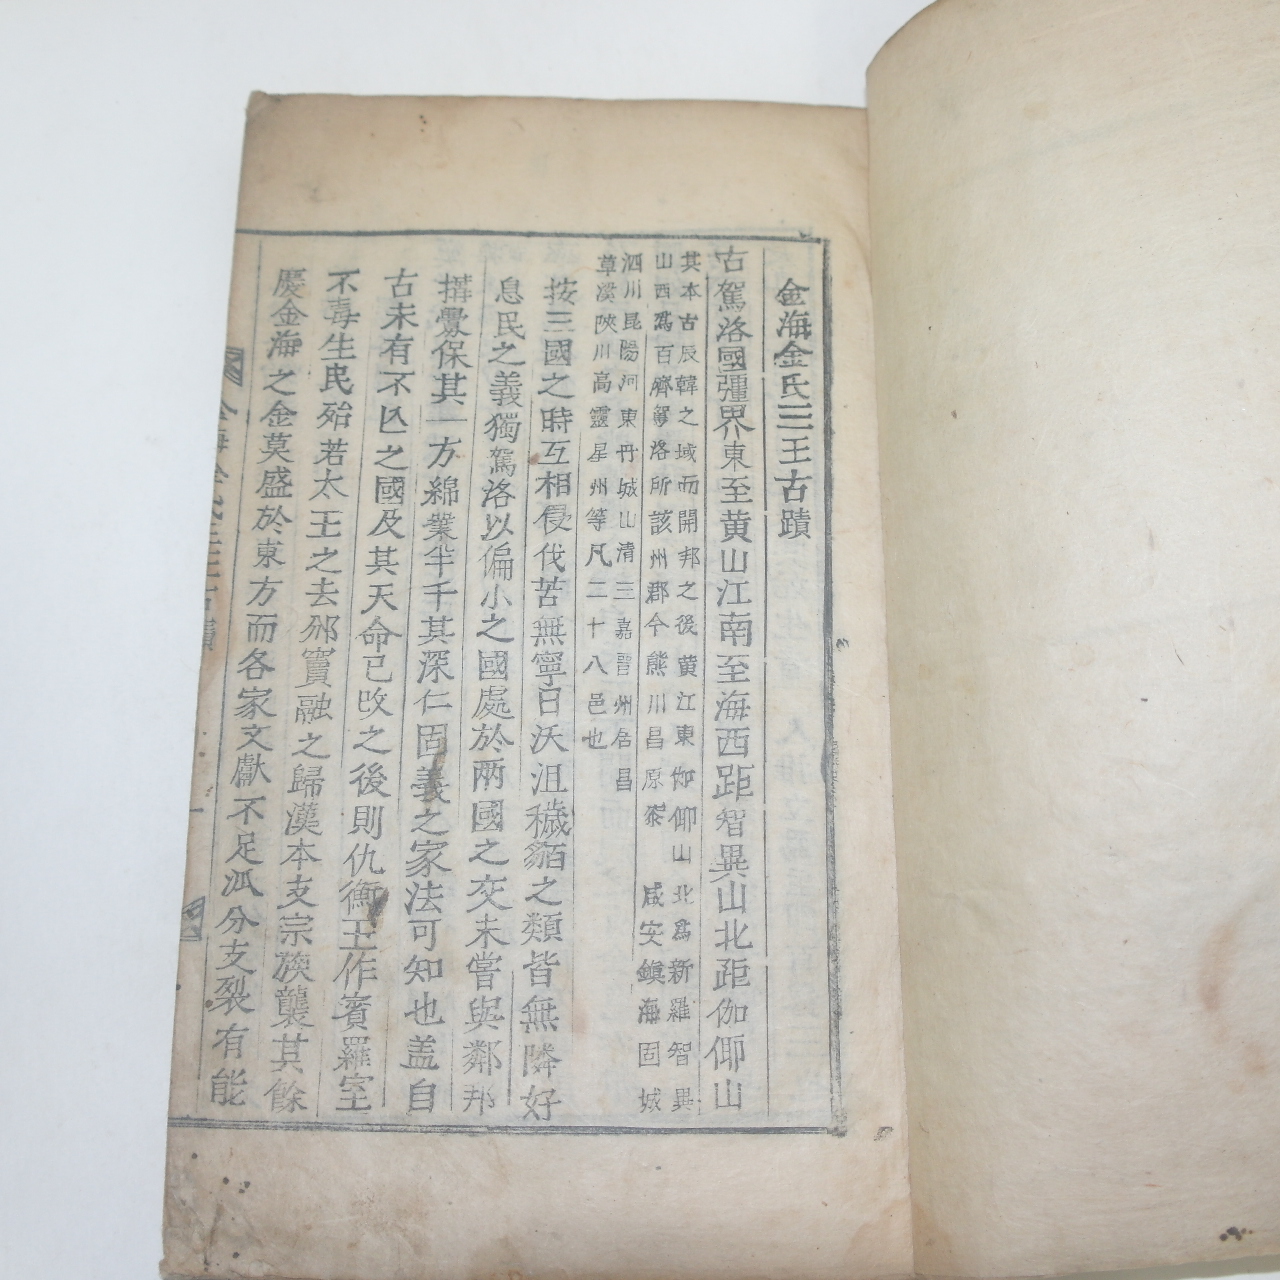 金海金氏三王古蹟
古駕洛國彊界東至黄山江南至海西距智異山北距伽倻山
其本古辰韓之域而開邦之後黄江東伽倻山北爲新羅智異
山西爲百濟駕洛所該州郡今熊川昌原柒 咸安鎭海固城
泗川昆陽河東丹城山清三嘉晋州居昌
草溪陜川高靈星州等凡二十八邑也
按三國之時互相侵伐苦無寧日沃沮穢貊之類皆無隣好
息民之義獨駕洛以偏小之國處於兩國之交未嘗與鄰邦
搆釁保其一方綿業半千其深仁固義之家法可知也盖自
古未有不亾之國及其天命已改之後則仇衡王作賓羅室
不毒生民殆若太王之去邠竇融之歸漢本支宗族襲其餘
慶金海之金莫盛於東方而各家文獻不足瓜分支裂有能
金海金氏三王古蹟 一